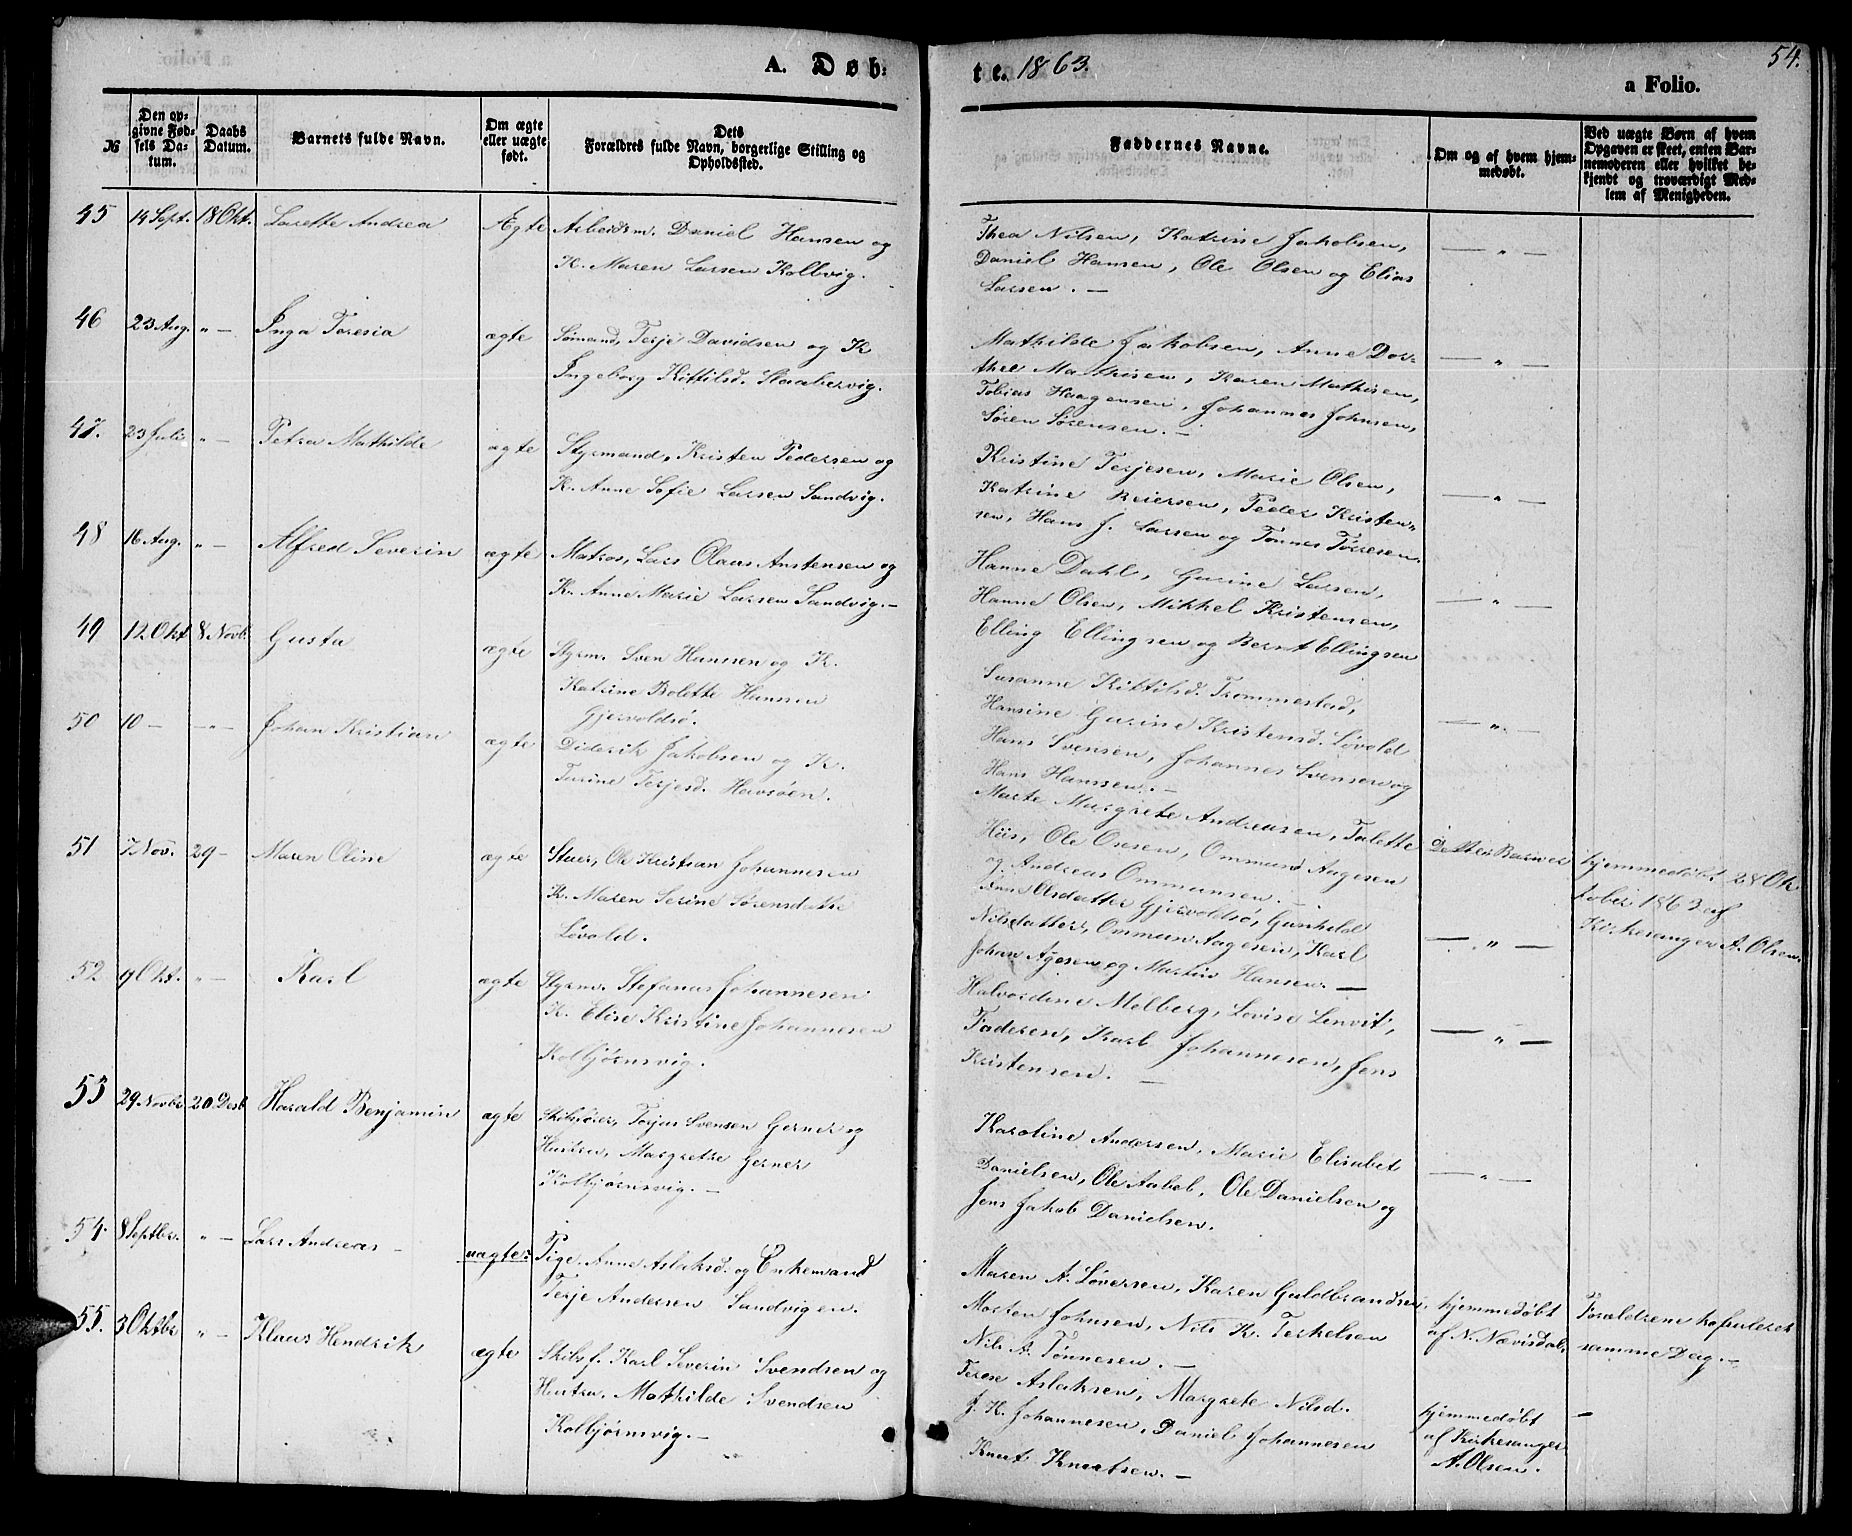 A. Døb-
te. 1863.
54.
a Folio.
№
Den op-
givne Fød-
sels Da-
tum.
Daabs
Datum.
Barnets fulde Navn.
Om ægte
eller uægte
født.
Dets
Forældres fulde Navn, borgerlige Stilling og
Opholdssted.
Faddernes Navne.
Om og af hvem hjem-
medøbt.
Ved uægte Børn af hvem
Opgaven er skeet, enten Bar-
nemoderen eller hvilket be-
kjendt og troværdigt Med-
lem af Menigheden.
45 14 Sept. 18 Okt. Larette Andrea Ægte Arbeidsm. Daniel Hansen og
K. Maren Larsen Kolbvig.
Thea Nilsen, Katrine Jakobsen, — " —
Daniel Hansen, Ole Olsen og Elias
Larsen. —
46 23 Aug. " — Inga Teresia ægte Sømand, Terje Davidsen og K
Ingeborg Kittilsd. Skaabervig.
Mathilde Jakobsen, Anne Dor- — " —
thea Mathisen, Karen Mathisen,
Tobias Haagensen, Johannes Johnsen,
Søren Sørensen. —
47. 23 Juli " — Petra Mathilde ægte Styrmand, Kristen Pedersen og
K. Anne Sofie Larsen Sandvig.
Kristine Terjesen, Marie Olsen,
Katrine Reiersen, Peder Kristen- — " —
sen, Hans J. Larsen og Tønnes Tørresen.
48 16 Aug. " — Alfred Severin ægte Matros, Lars Olaus Anstensen og
K. Anne Marie Larsen Sandvig. —
Hanne Dahl, Gurine Larsen,
Hanne Olsen, Mikkel Kristensen, — " —
Elling Ellingsen og Bernt Ellingsen
49 12 Okt 8 Novb. Gusta ægte Styrm. Sven Hansen og K.
Katrine Bolette Hansen
Gjervoldsø.
Susanne Kittilsd. Trommestad,
Hansine Gurine Kristensd. Løvold — " —
Hans Svensen, Johannes Svensen og
Hans Hansen. —
50 10 — — " — Johan Kristian ægte Diderik Jakobsen og K.
Turine Terjesd. Havsøen.
Marte Margrete Andreasen, Talette
Hiis, Ole Olsen, Ommund Aagesen
og Andreas Ommunsen. —
51 7 Nov. 29 — Maren Oline ægte Stuer, Ole Kristian Johannesen
K. Maren Serine Sørensdatte
Løvold.
Dette Barn er hjemmedøbt 28 Ok
tober 1863 af
Kirkesanger A. Olsen.
Ann Olsdatter Gjervoldsø, Gunhild
Nilsdatter, Ommun Aagesen, Karl — " —
Johan Agesen og Martin Hansen. —
52 9 Okt. " — Karl ægte Styrm. Stefanus Johannesen
K. Elise Kristine Johannesen
Kolbjørnsvig.
Halvordine Molberg, Lovise Lenvit,
Federsen, Karl Johannesen, Jens — " —
Kristensen. —
53 29 Novbr 20 Desb Harald Benjamin ægte Skibsfører, Torjus Svensen Gerner og
Hustru, Margrethe Gerner
Kolbjørnsvig. —
Karoline Andersen, Marie Elisabet
Danielsen, Ole Aabel, Ole Danielsen og — " —
Jens Jakob Danielsen.
54. 8 Septbr. " — Lars Andreas — uægte: Pige. Anne Aslaksd. og Enkemand
Terje Andersen Sandvigen.
Maren A. Løversen, Karen Guldbrandsen, hjemmedøbt Forældrene kopuleret
Morten Johnsen, Nils K. Terkelsen af N. Nævisdal, samme Dag. —
Nils A. Tønnesen. —
55. 3 Oktbr " — Klaus Hendrik ægte Skibsf. Karl Severin Svendsen og
Hustru, Mathilde Svendsen
Kolbjørnsvig. —
Terese Aslaksen, Margrete Nilsd. hjemmedøbt —
J. K. Johannesen, Daniel Johannesen af Kirkesanger
Knut Knutsen. — A. Olsen.